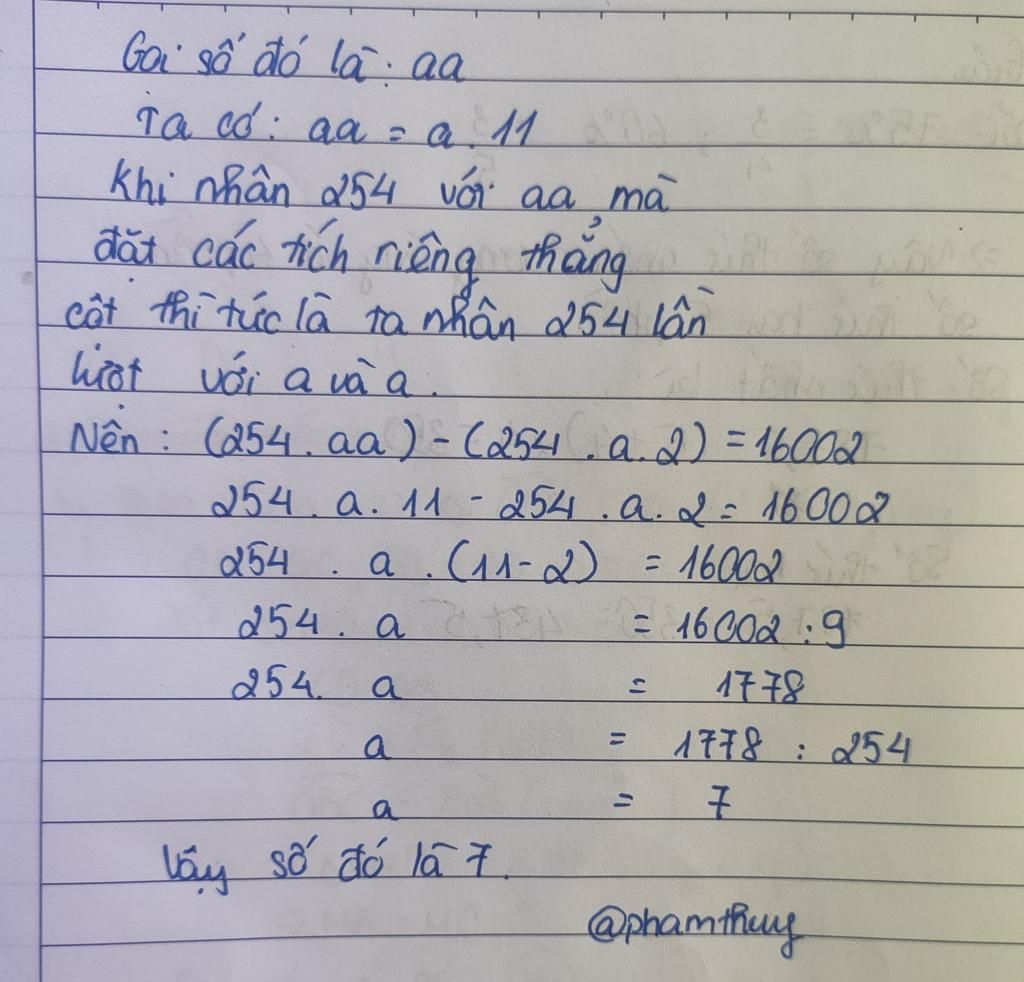 Gọi số đó là: aa
Ta có: aa = a.11
Khi nhân 254 với aa mà
đặt các tích riêng thẳng
cột thì tức là ta nhân 254 lần
lượt với a và a.
Nên : (254 . aa) - (254 . a. 2) = 16002
254 . a. 11 - 254 . a. 2 = 16002
254 . a . (11-2) = 16002
254. a = 16002 : 9
254. a = 1778
a = 1778 : 254
a = 7
Vậy số đó là 7.
@phamthuy